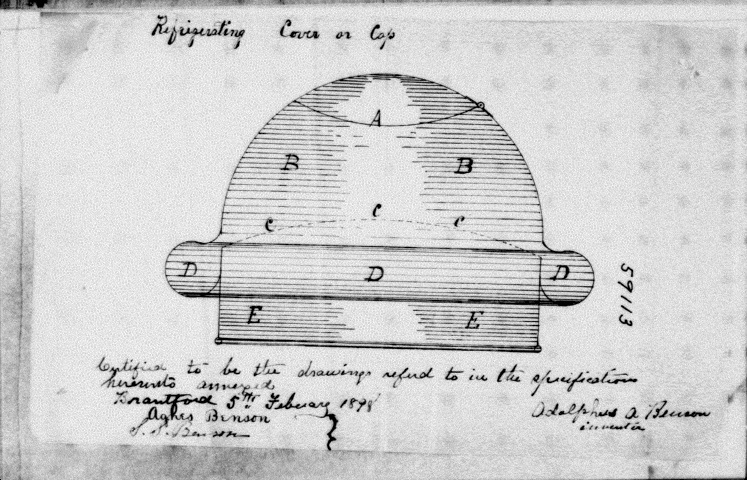 Refrigerating Cover or Cap
A
B B
C C C
D D D
E E
59113
Certified to be the drawings referd to in the specifications
hereinto annexed
Brantford 5th Febuary 1898
Agnes Benson
S. S. Benson
Adolphus A Benson
inventor